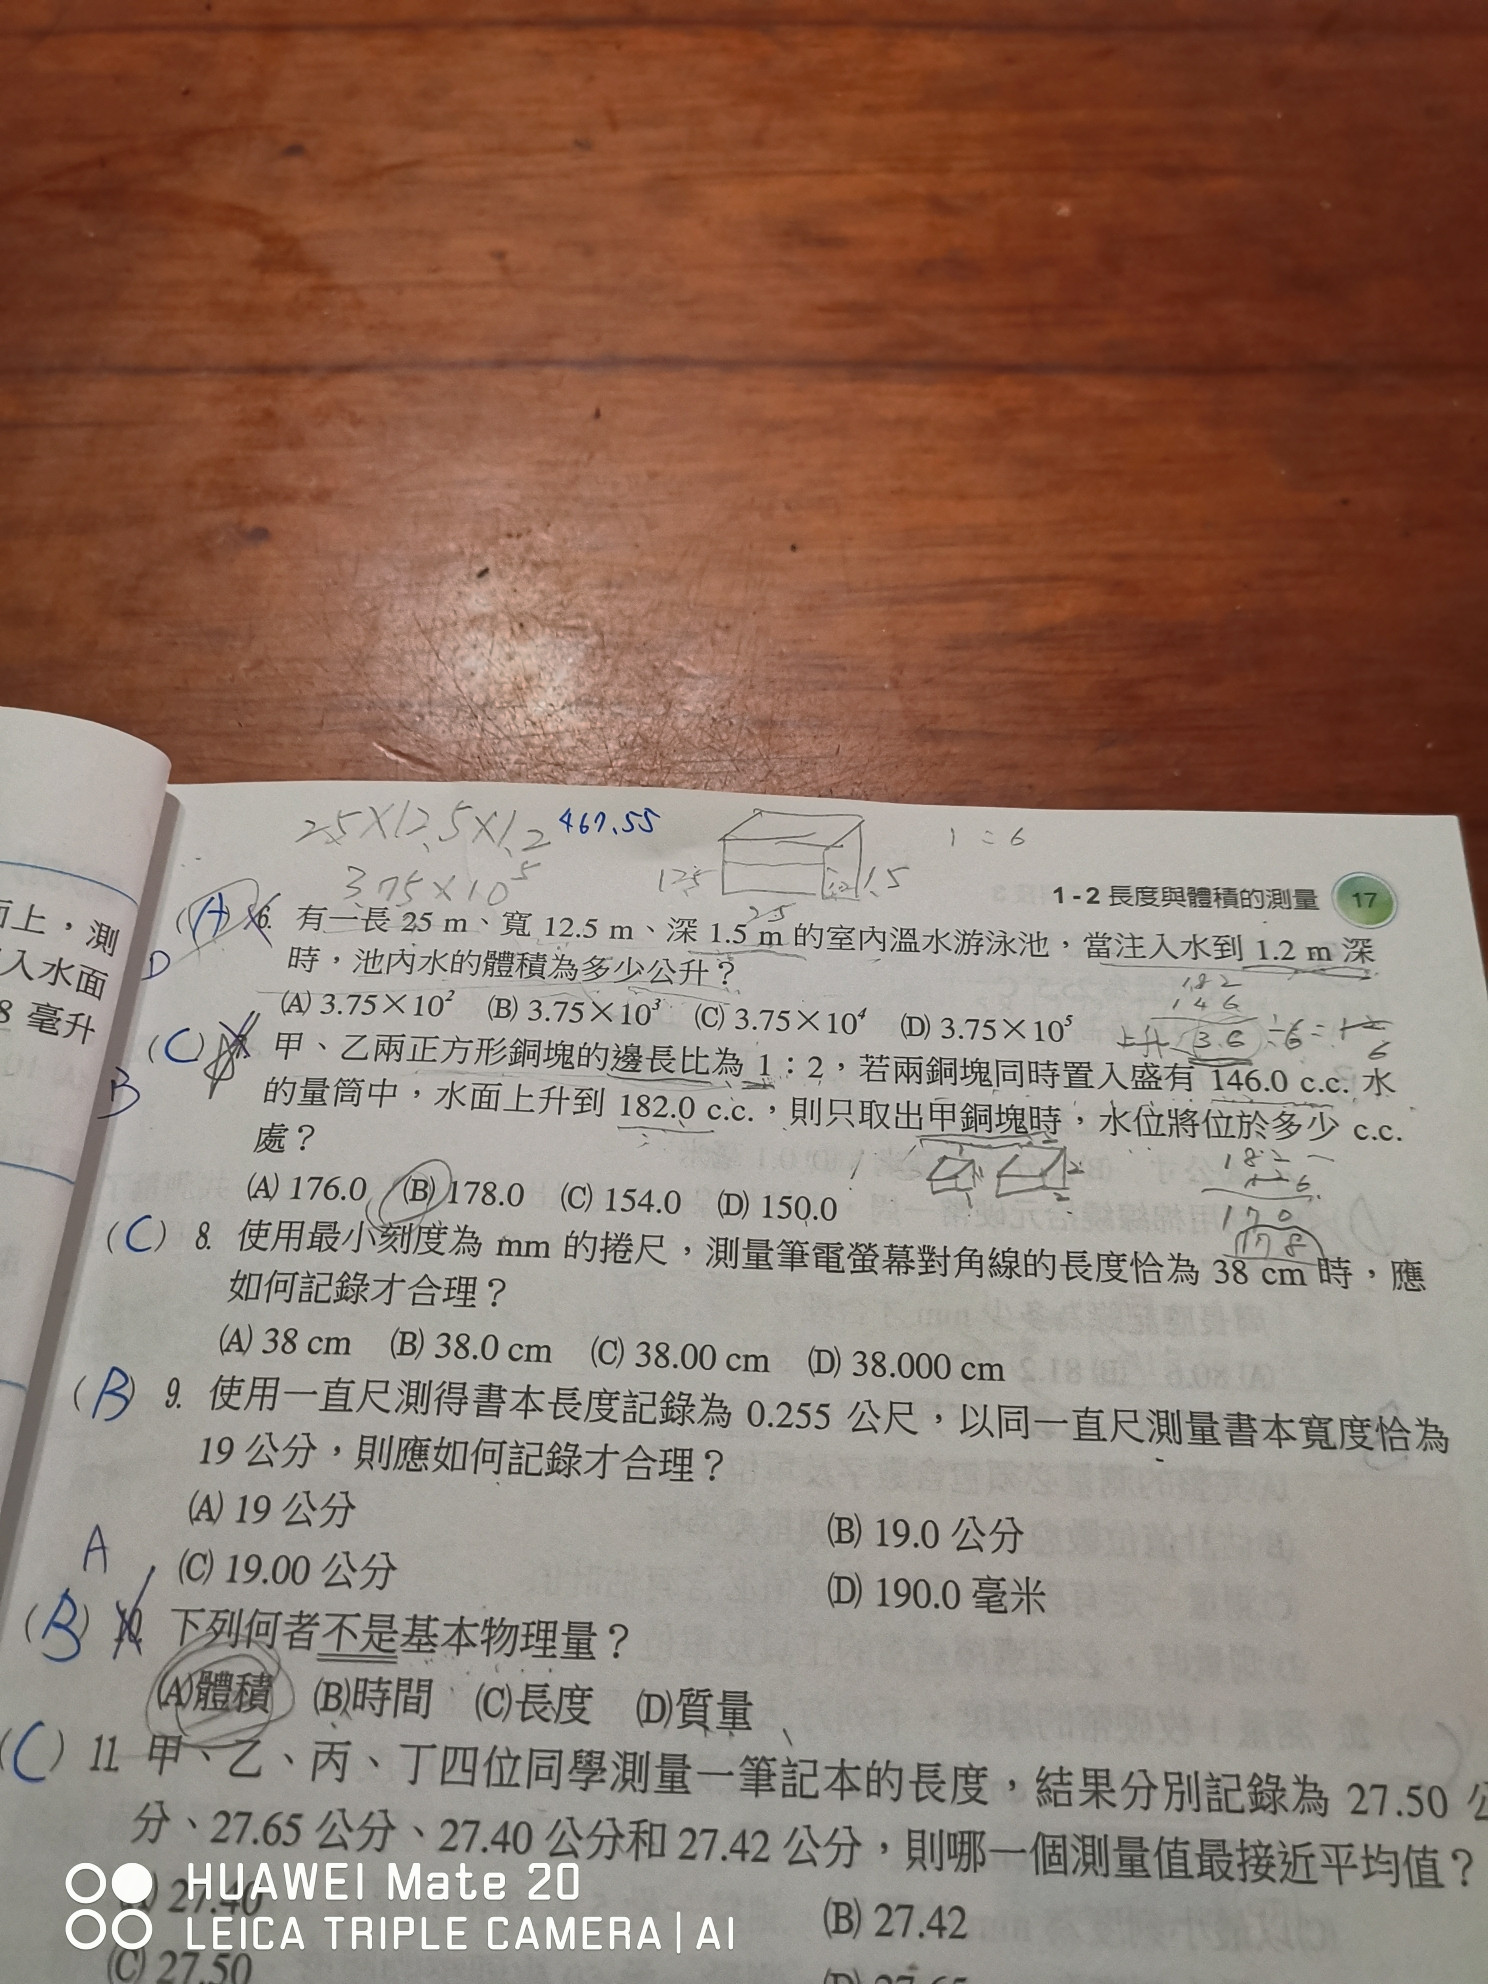 25×12.5×1.2 467.55
3.75×10⁵
125
1.5
25
1:6
1-2 長度與體積的測量 17
面上,測
入水面
8 毫升
(A) 6. 有一長 25 m、寬 12.5 m、深 1.5 m 的室內溫水游泳池,當注入水到 1.2 m 深
D 時,池內水的體積為多少公升?
(A) 3.75×10² (B) 3.75×10³ (C) 3.75×10⁴ (D) 3.75×10⁵
182
146
上升 3.6 ÷6=
6
(C) 甲、乙兩正方形銅塊的邊長比為 1:2,若兩銅塊同時置入盛有 146.0 c.c. 水
B 的量筒中,水面上升到 182.0 c.c.,則只取出甲銅塊時,水位將位於多少 c.c.
處?
(A) 176.0 (B) 178.0 (C) 154.0 (D) 150.0
182
170
178
(C) 8. 使用最小刻度為 mm 的捲尺,測量筆電螢幕對角線的長度恰為 38 cm 時,應
如何記錄才合理?
(A) 38 cm (B) 38.0 cm (C) 38.00 cm (D) 38.000 cm
(B) 9. 使用一直尺測得書本長度記錄為 0.255 公尺,以同一直尺測量書本寬度恰為
19 公分,則應如何記錄才合理?
(A) 19 公分 (B) 19.0 公分
(C) 19.00 公分 (D) 190.0 毫米
A
(B) 10. 下列何者不是基本物理量?
(A)體積 (B)時間 (C)長度 (D)質量
(C) 11. 甲、乙、丙、丁四位同學測量一筆記本的長度,結果分別記錄為 27.50 公
分、27.65 公分、27.40 公分和 27.42 公分,則哪一個測量值最接近平均值?
(A) 27.40 (B) 27.42
(C) 27.50 (D) 27.65
HUAWEI Mate 20
LEICA TRIPLE CAMERA | AI